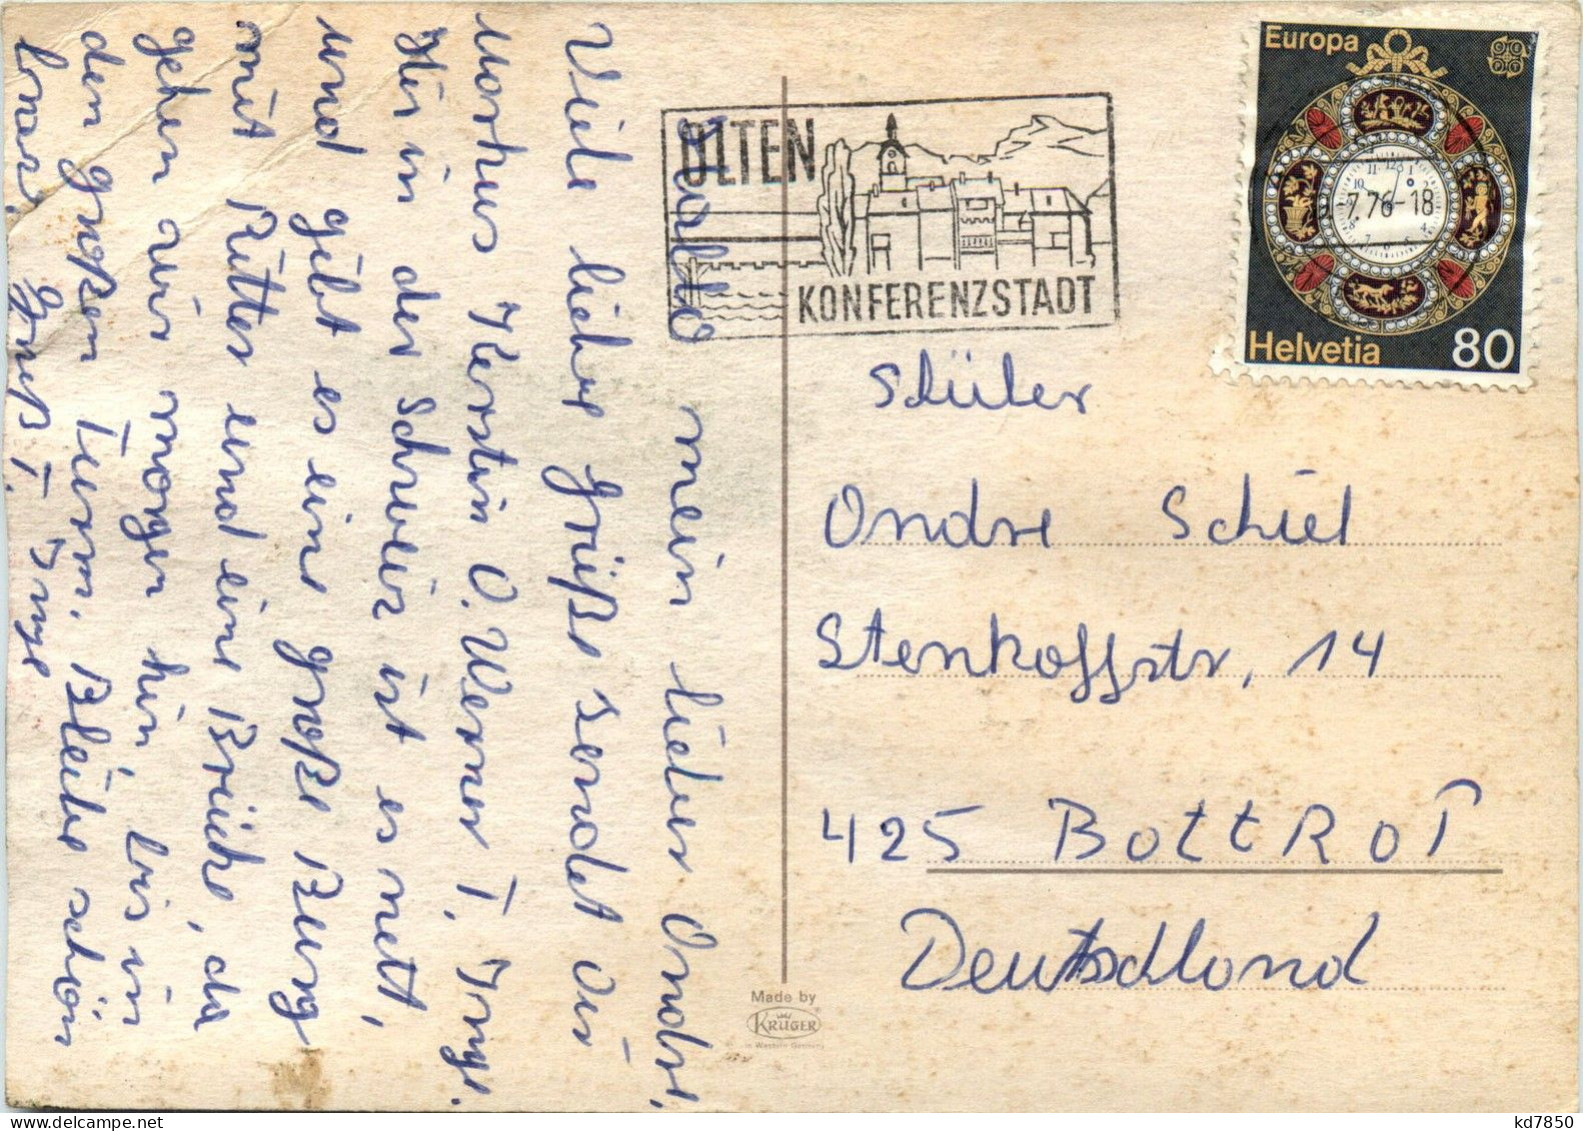 Hallo mein lieber Andre,
Viele liebe Grüße sendet dir
Kerstin O. Werner T, Inge.
Hir in der Schweiz ist es nett,
und gibt es eine große Burg
mit Ritter und eine Brücke, da
gehen wir morgen hin, bis in
den großen Turm. Bleibe schön
brav. Gruß T. Inge
OLTEN
KONFERENZSTADT
7.76-18
Europa
CEPT
Helvetia 80
Schüler
Andre Schiel
Stenkoffstr, 14
425 BottRoT
Deutschland
Made by
KRÜGER
in Western Germany
kd7850